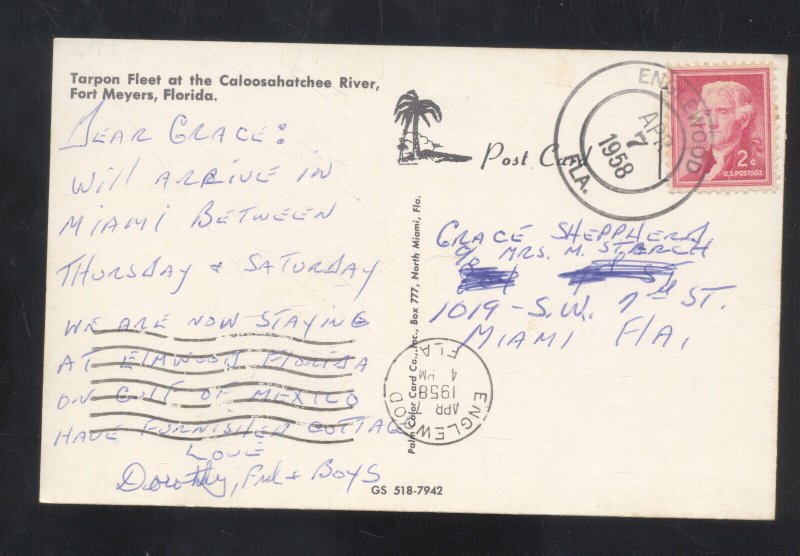 Tarpon Fleet at the Caloosahatchee River,
Fort Meyers, Florida.
DEAR GRACE:
Will ARRIVE IN
MIAMI BETWEEN
THURSDAY & SATURDAY
WE ARE NOW STAYING
AT ELMWOOD FLORIDA
ON GULF OF MEXICO
HAVE FURNISHED COTTAGE
LOVE
Dorothy, & BOYS
Post Card
Palm Color Card Co., Inc., Box 777, North Miami, Fla.
GS 518-7942
ENGLEWOOD
APR
7
1958
FLA.
2¢
U.S. POSTAGE
GRACE SHEPPHERD
c/o MRS. M. STERCH
1019 - S.W. 7th ST.
MIAMI FlA.
ENGLEWOOD
APR 7
1958
4 PM
FLA